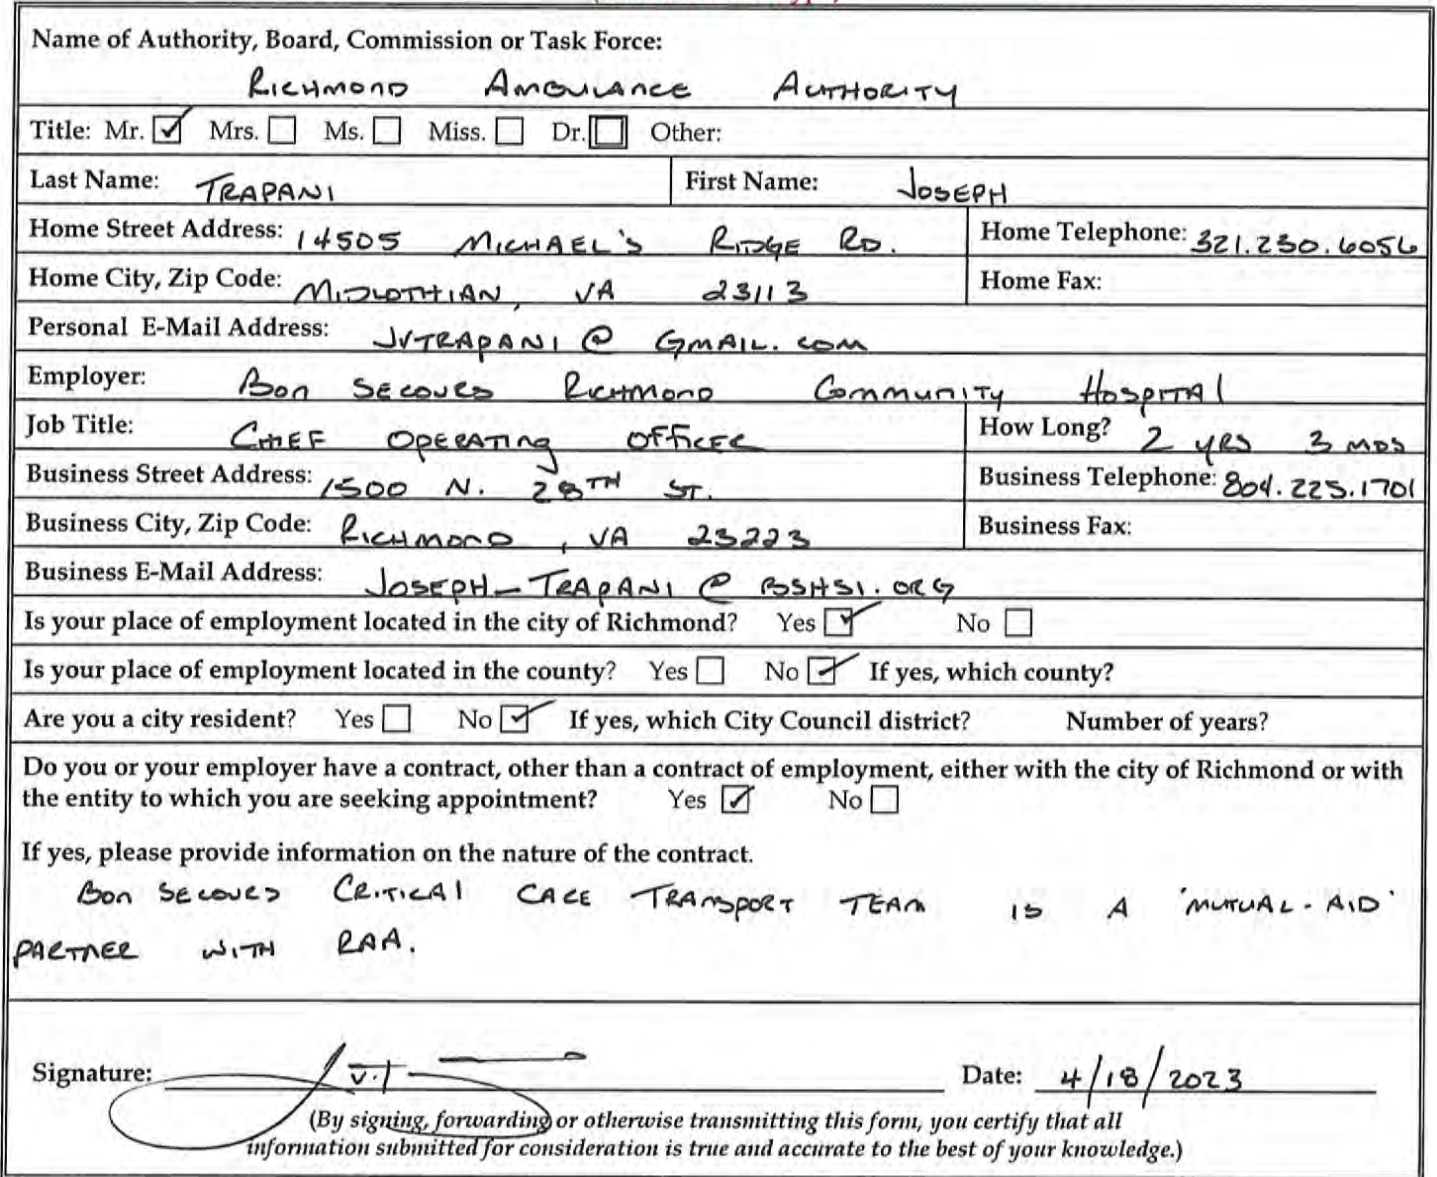 Name of Authority, Board, Commission or Task Force:
RICHMOND AMBULANCE AUTHORITY
Title: Mr. ☑ Mrs. ☐ Ms. ☐ Miss. ☐ Dr. ☐ Other:
Last Name: TRAPANI First Name: JOSEPH
Home Street Address: 14505 MICHAEL'S RIDGE RD. Home Telephone: 321.230.6056
Home City, Zip Code: MIDLOTHIAN, VA 23113 Home Fax:
Personal E-Mail Address: JVTRAPANI @ GMAIL.COM
Employer: BON SECOURS RICHMOND COMMUNITY HOSPITAL
Job Title: CHIEF OPERATING OFFICER How Long? 2 YRS 3 MOS
Business Street Address: 1500 N. 28TH ST. Business Telephone: 804.225.1701
Business City, Zip Code: RICHMOND, VA 23223 Business Fax:
Business E-Mail Address: JOSEPH_TRAPANI @ BSHSI.ORG
Is your place of employment located in the city of Richmond? Yes ☑ No ☐
Is your place of employment located in the county? Yes ☐ No ☑ If yes, which county?
Are you a city resident? Yes ☐ No ☑ If yes, which City Council district? Number of years?
Do you or your employer have a contract, other than a contract of employment, either with the city of Richmond or with
the entity to which you are seeking appointment? Yes ☑ No ☐
If yes, please provide information on the nature of the contract.
BON SECOURS CRITICAL CARE TRANSPORT TEAM IS A 'MUTUAL-AID'
PARTNER WITH RAA.
Signature: Date: 4/18/2023
(By signing, forwarding or otherwise transmitting this form, you certify that all
information submitted for consideration is true and accurate to the best of your knowledge.)